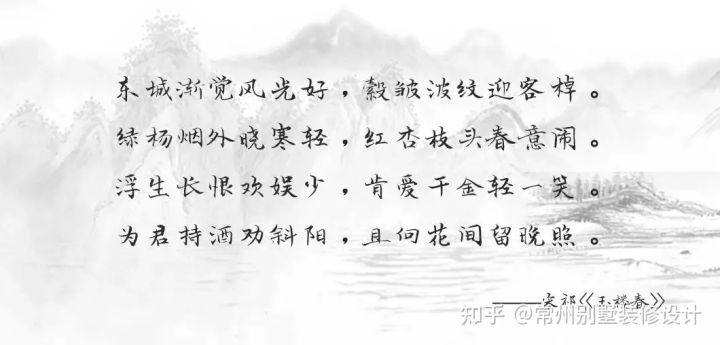 东城渐觉风光好，縠皱波纹迎客棹。
绿杨烟外晓寒轻，红杏枝头春意闹。
浮生长恨欢娱少，肯爱千金轻一笑。
为君持酒劝斜阳，且向花间留晚照。
——宋祁《玉楼春》
知乎 @常州别墅装修设计